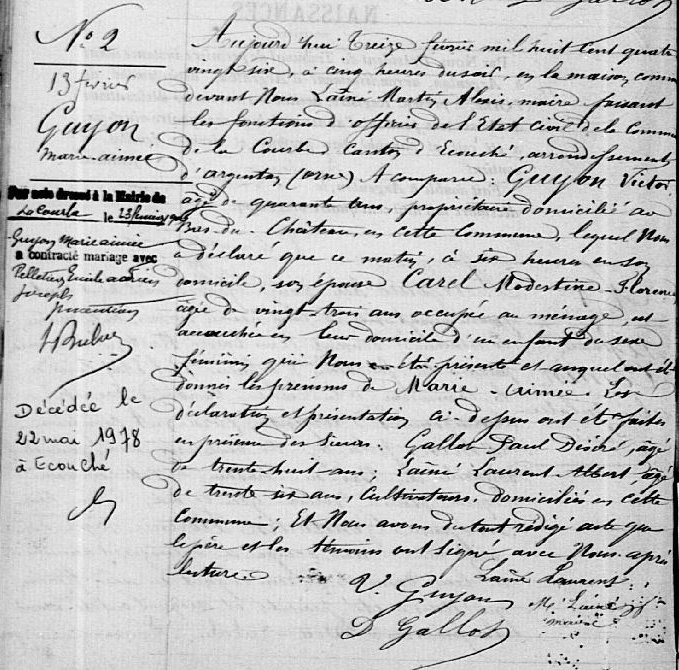 N° 2
13 février
Guyon
Marie-aimée
Par acte dressé à la Mairie de
La Courbe le
Guyon Marie aimée
a contracté mariage avec
Pelletier Emile
Joseph
Décédée le
22 mai 1978
à Ecouché
Aujourd'hui Treize février mil huit cent quatre
vingt six, à cinq heures du soir, en la maison comm
devant Nous Lainé Martin Alexis, maire faisant
les fonctions d'officier de l'Etat Civil de la Commune
de la Courbe canton d'Ecouché, arrondissement
d'argentan (orne) A comparu: Guyon Victor
âgé de quarante ans, propriétaire domicilié au
Bas-du-Château, en cette Commune, lequel Nous
a déclaré que ce matin, à six heures en son
domicile, son épouse Carel Modestine-Florence
âgée de vingt-trois ans occupée au ménage, est
accouchée en leur domicile d'un enfant du sexe
féminin qui Nous a été présenté et auquel ont été
donnés les prénoms de Marie-Aimée. Les
déclaration et présentation ci-dessus ont été faites
en présence des sieurs: Gallot Paul Désiré, âgé
de trente-huit ans; Lainé Laurent-Albert, âgé
de trente six ans, Cultivateurs domiciliés en cette
Commune; Et Nous avons du tout rédigé acte que
le père et les témoins ont signé avec Nous après
lecture.
Lainé Laurent
V. Guyon
M. Lainé
maire
D Gallot